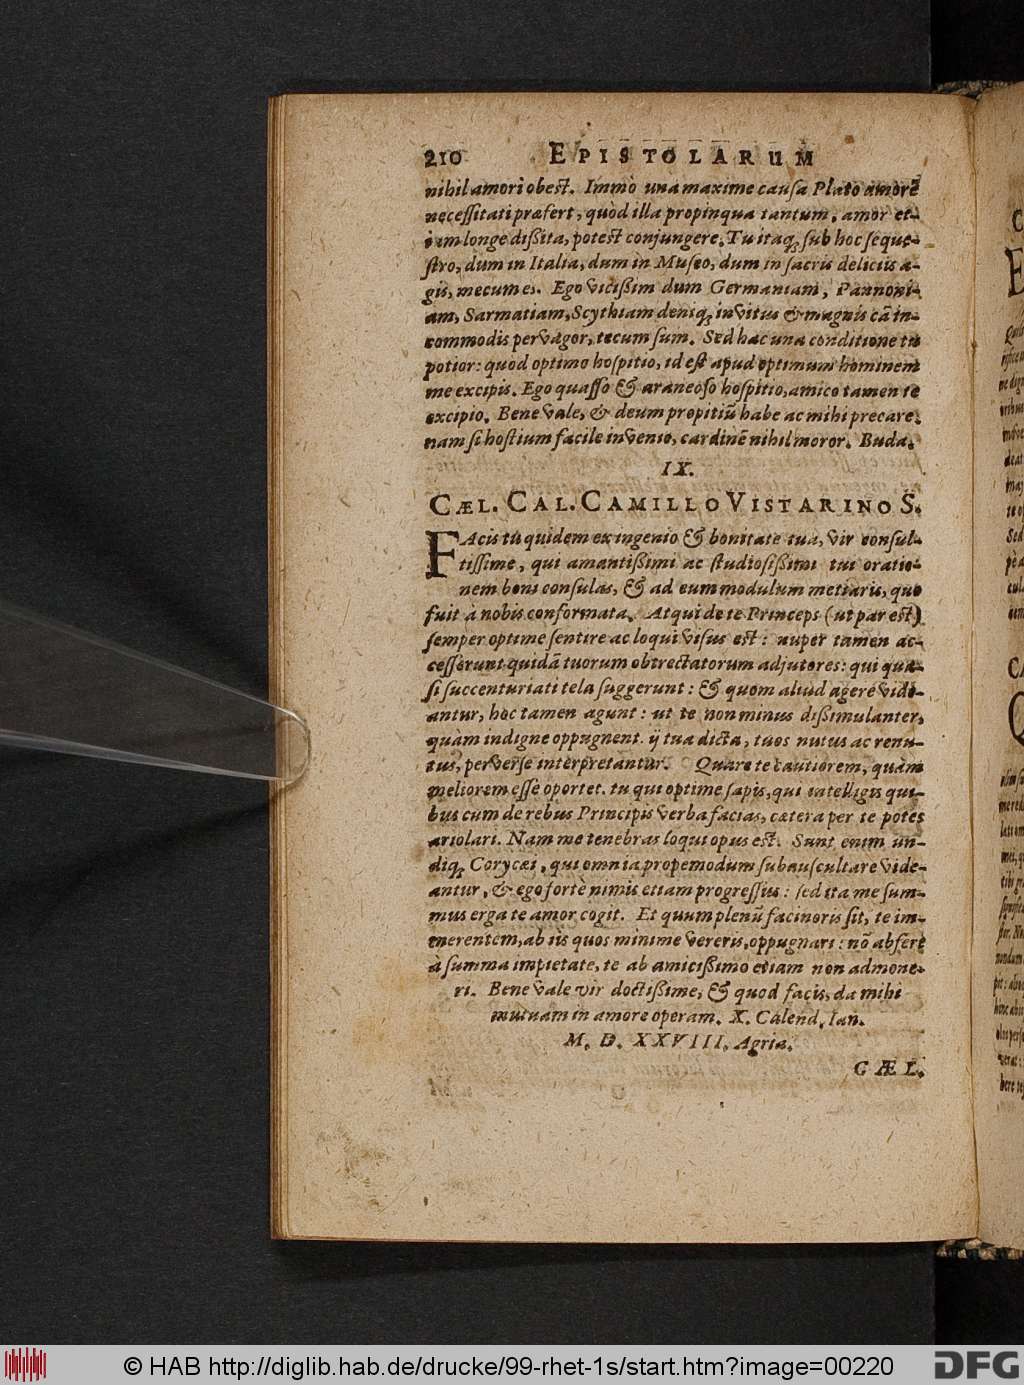 210 EPISTOLARUM
nihil amori obest. Immò una maxime causa Plato amorē
necessitati præfert, quòd illa propinqua tantum, amor et-
iam longe dißita, potest conjungere. Tu itaq; sub hoc seque-
stro, dum in Italia, dum in Museo, dum in sacris deliciis a-
gis, mecum es. Ego vicißim dum Germaniam, Pannoni-
am, Sarmatiam, Scythiam deniq; invitus & magnis cū in-
commodis pervagor, tecum sum. Sed hac una conditione tu
potior: quod optimo hospitio, id est apud optimum hominem
me excipis. Ego quasso & araneoso hospitio, amico tamen te
excipio. Bene vale, & deum propitiū habe ac mihi precare.
nam si hostium facile invenio, cardinē nihil moror. Buda.
IX.
CÆL. CAL. CAMILLO VISTARINO S.
FAcis tu quidem ex ingenio & bonitate tua, vir consul-
tissime, qui amantißimi ac studiosißimi tui oratio-
nem boni consulas, & ad eum modulum metiaris, quo
fuit à nobis conformata. Atqui de te Princeps (ut par est)
semper optime sentire ac loqui visus est: nuper tamen ac-
cesserunt quidā tuorum obtrectatorum adjutores: qui qua-
si succenturiati tela suggerunt: & quom aliud agere vide-
antur, hoc tamen agunt: ut te non minus dißimulanter,
quàm indigne oppugnent. ij tua dicta, tuos nutus ac renu-
tus, perverse interpretantur. Quare te cautiorem, quàm
meliorem esse oportet. tu qui optime sapis, qui intelligis qui-
bus cum de rebus Principis verba facias, cætera per te potes
ariolari. Nam me tenebras loqui opus est. Sunt enim un-
diq; Corycæi, qui omnia propemodum subauscultare vide-
antur, & ego fortè nimis etiam progressus: sed ita me sum-
mus erga te amor cogit. Et quum plenū facinoris sit, te im-
merentem, ab iis quos minime vereris, oppugnari: nō abfert
à summa impietate, te ab amicißimo etiam non admone-
ri. Bene vale vir doctißime, & quod facis, da mihi
mutuam in amore operam. X. Calend. Ian.
M. D. XXVIII. Agria.
CÆL.
© HAB http://diglib.hab.de/drucke/99-rhet-1s/start.htm?image=00220
DFG